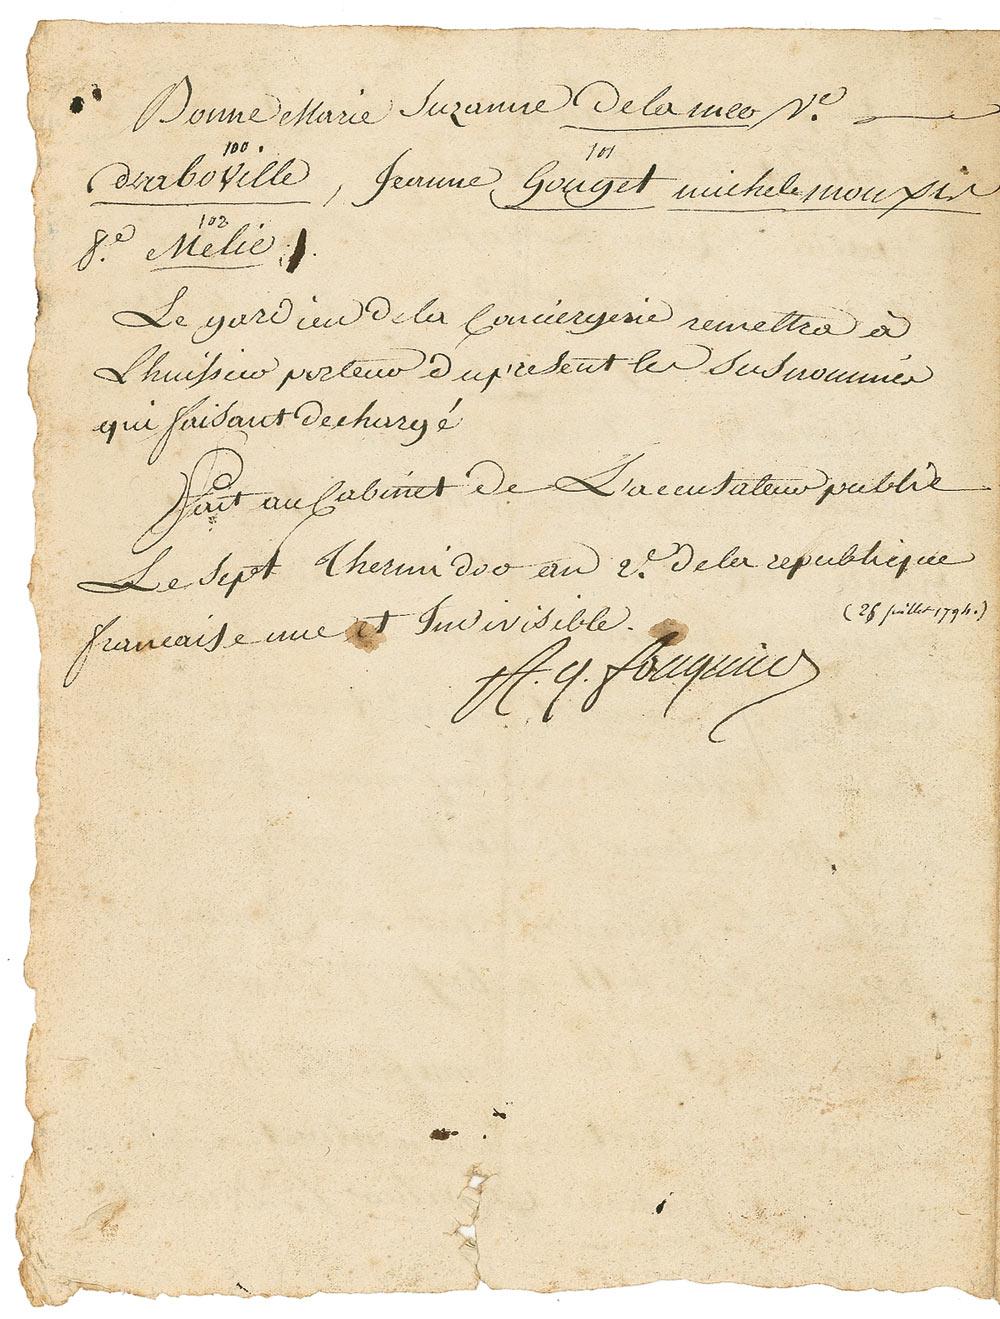 Bonne Marie Suzanne Delameo Ve.
100.
101
draboville, Jeanne Gouget michele
102
fe. Melie
Le gardien de la Conciergerie remettra à
L'huissier porteur du present les susnommés
qui faisant decharge
Fait au Cabinet de L'accusateur public
Le sept thermidor an 2e. de la republique
francaise une et Indivisible.
(25 juillet 1794.)
A. q. fouquier